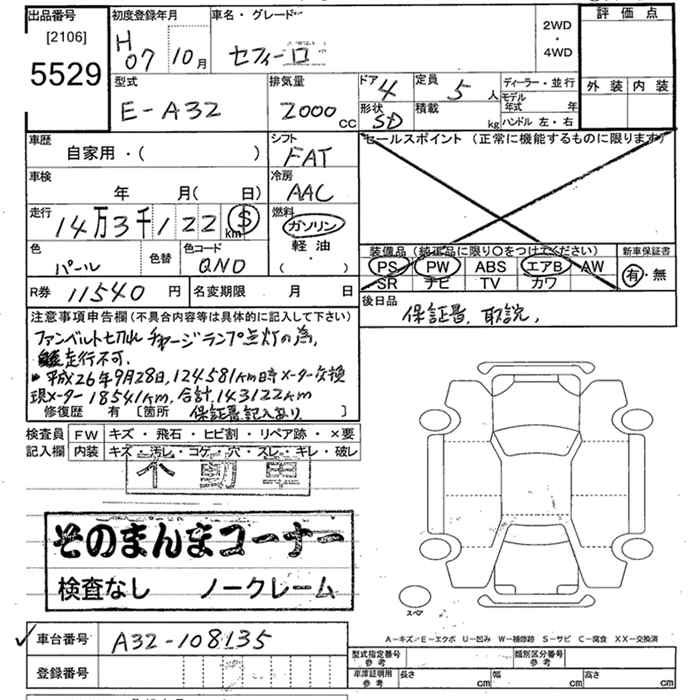 出品番号
[2106]
5529
初度登録年月
H 07 10月
車名・グレード
セフィーロ
2WD
・
4WD
評価点
外装 内装
型式
E-A32
排気量
2000 CC
ドア 4
定員 5 人
形状 SD
積載 kg
ディーラー・並行
モデル年式 年
ハンドル 左・右
車歴
自家用・( )
シフト
FAT
セールスポイント (正常に機能するものに限ります)
車検
年 月( 日)
冷房
AAC
走行
14万3千122 km Ⓢ
燃料
ガソリン
軽油
・
( )
色
パール
色替
色コード
QN0
装備品 (純正品に限り〇をつけてください)
PS PW ABS エアB AW
SR ナビ TV カワ
新車保証書
有・無
R券 11540 円
名変期限 月 日
後日品
保証書、取説、
注意事項申告欄(不具合内容等は具体的に記入して下さい)
ファンベルト切れ チャージランプ点灯の為、
走行不可.
・平成26年9月28日,124.581km時メーター交換
現メーター 18541km, 合計, 143122km
修復歴 有 [箇所 保証書記入あり ]
検査員記入欄
FW キズ・飛石・ヒビ割・リペア跡・×要
内装 キズ・汚レ・コゲ・穴・スレ・キレ・破レ
不動車
そのまんまコーナー
検査なし ノークレーム
スペア
A-キズ／E-エクボ U-凹み W-補修跡 S-サビ C-腐食 XX-交換済
✓ 車台番号 A32-108135
登録番号
型式指定番号 参考
類別区分番号 参考
車庫証明用 参考 長さ cm 幅 cm 高さ cm